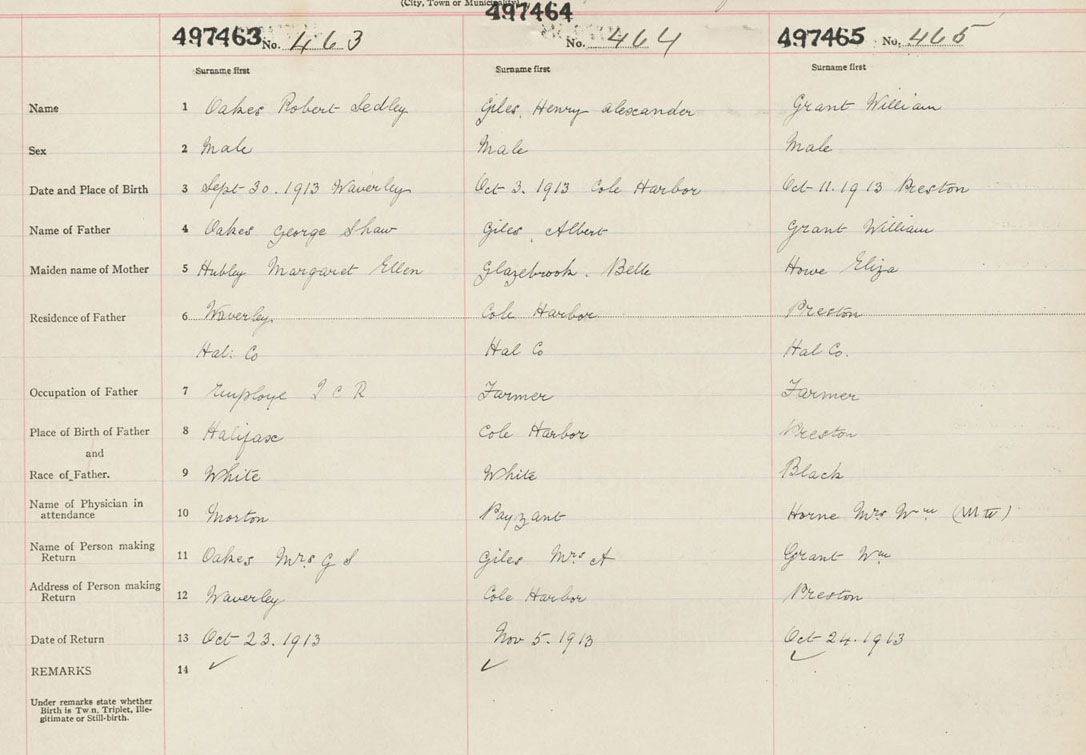 (City, Town or Municipality)
497463 No. 463 497464 No. 464 497465 No. 465
Surname first Surname first Surname first
Name 1 Oakes Robert Sedley Giles, Henry Alexcander Grant William
Sex 2 Male Male Male
Date and Place of Birth 3 Sept 30. 1913 Waverley Oct 3. 1913 Cole Harbor Oct 11. 1913 Preston
Name of Father 4 Oakes George Shaw Giles, Albert Grant William
Maiden name of Mother 5 Hubley Margaret Ellen Glazebrook. Belle Howe Eliza
Residence of Father 6 Waverley Cole Harbor Preston
Hal: Co Hal Co Hal Co.
Occupation of Father 7 Employe I C R Farmer Farmer
Place of Birth of Father 8 Halifax Cole Harbor Preston
and
Race of Father. 9 White White Black
Name of Physician in
attendance 10 Morton Payzant Horne Mrs Wm
Name of Person making
Return 11 Oakes Mrs G S Giles Mrs A Grant Wm
Address of Person making
Return 12 Waverley Cole Harbor Preston
Date of Return 13 Oct 23. 1913 Nov 5. 1913 Oct 24. 1913
REMARKS 14 ✓ ✓ ✓
Under remarks state whether
Birth is Twin, Triplet, Ille-
gitimate or Still-birth.